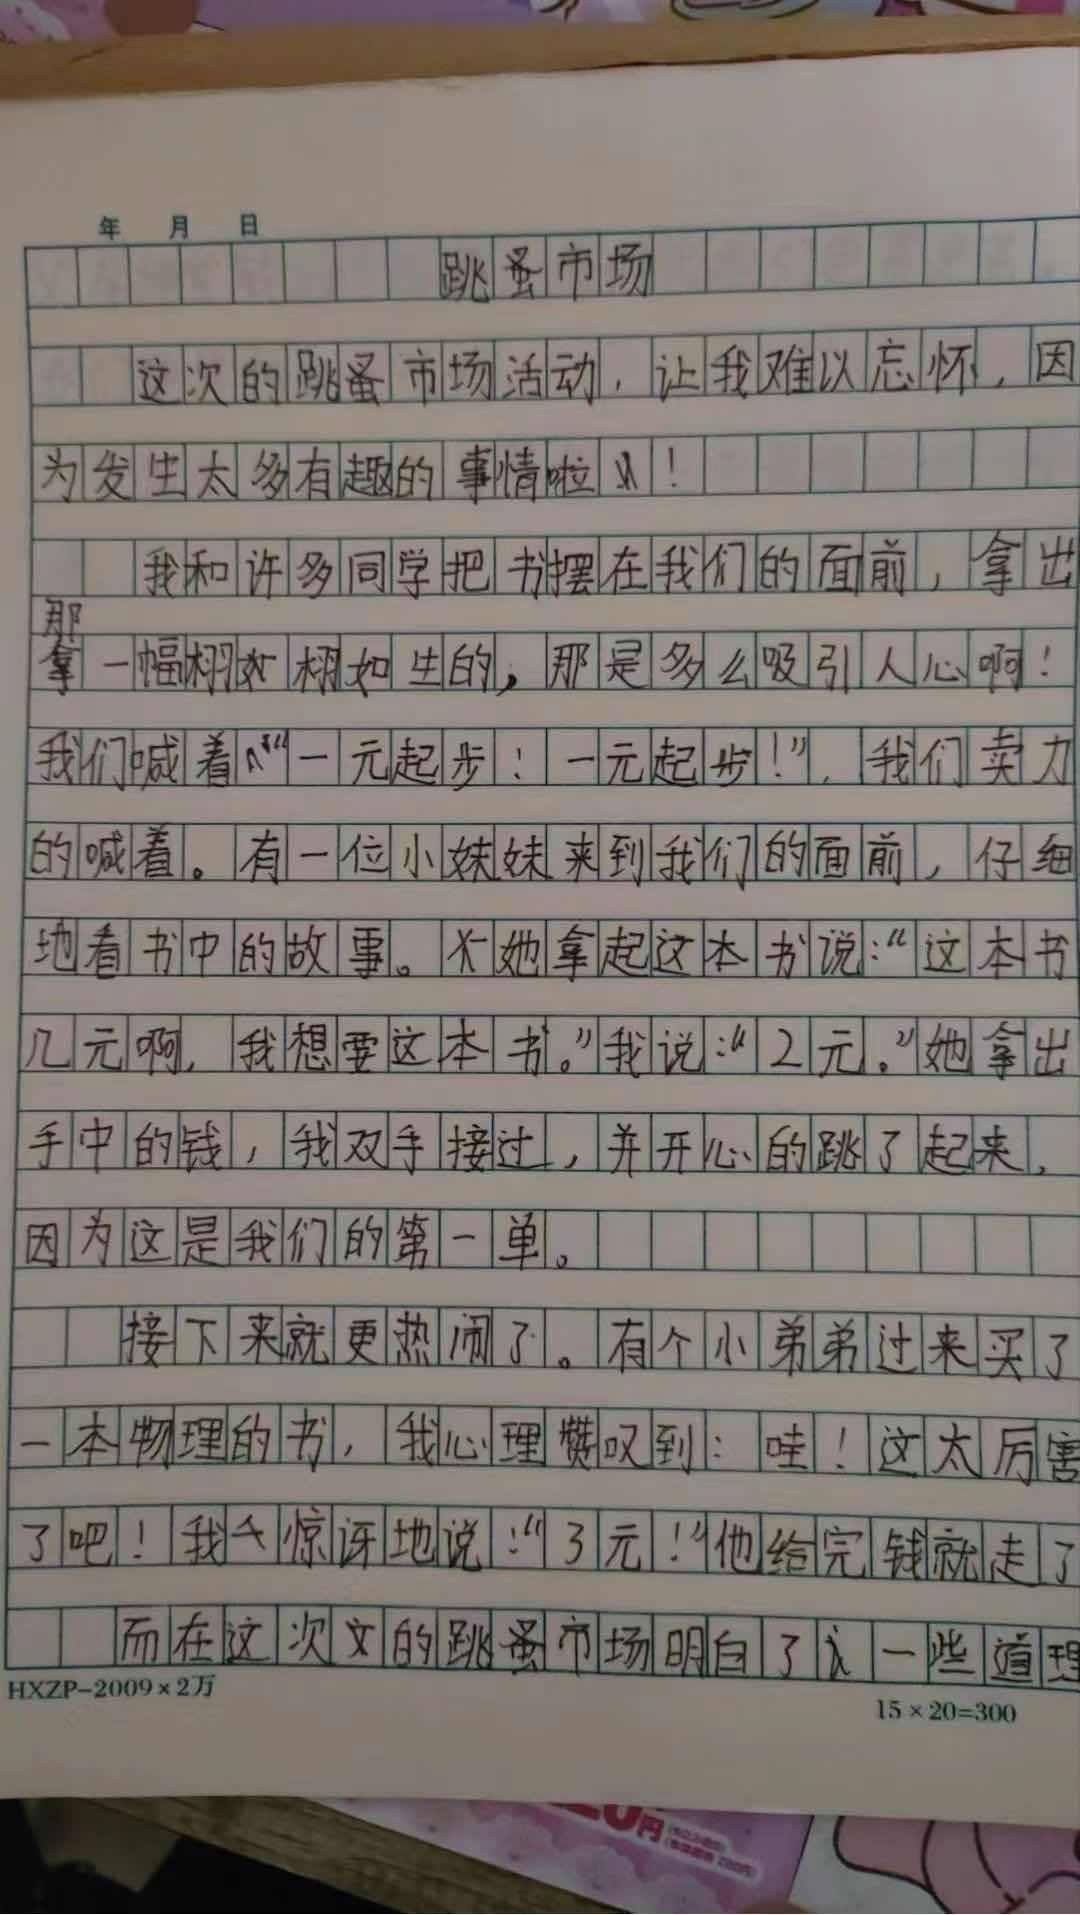 年 月 日
跳蚤市场
这次的跳蚤市场活动，让我难以忘怀，因
为发生太多有趣的事情啦！
我和许多同学把书摆在我们的面前，拿出
那
拿一幅栩如栩如生的，那是多么吸引人心啊！
我们喊着“一元起步！一元起步！”，我们卖力
的喊着。有一位小妹妹来到我们的面前，仔细
地看书中的故事。她拿起这本书说：“这本书
几元啊，我想要这本书。”我说：“2元。”她拿出
手中的钱，我双手接过，并开心的跳了起来，
因为这是我们的第一单。
接下来就更热闹了。有个小弟弟过来买了
一本物理的书，我心理赞叹到：哇！这太厉害
了吧！我惊讶地说：“3元！”他给完钱就走了
而在这次文的跳蚤市场明白了一些道理
HXZP-2009×2万
15×20=300
円